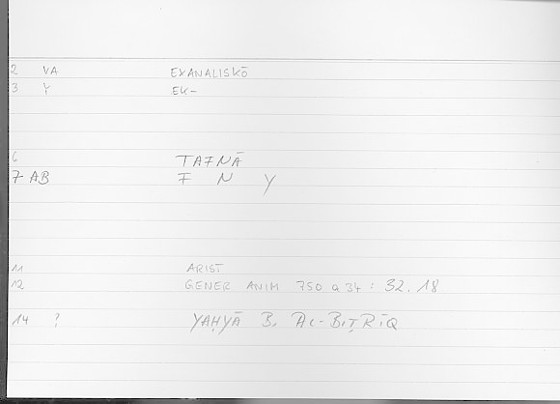 2 VA EXANALISKŌ
3 Y EK-
6 TAFNĀ
7 AB F N Y
11 ARIST
12 GENER ANIM 750 a 34 : 32, 18
14 ? YAḤYĀ B. AL-BIṬRĪQ